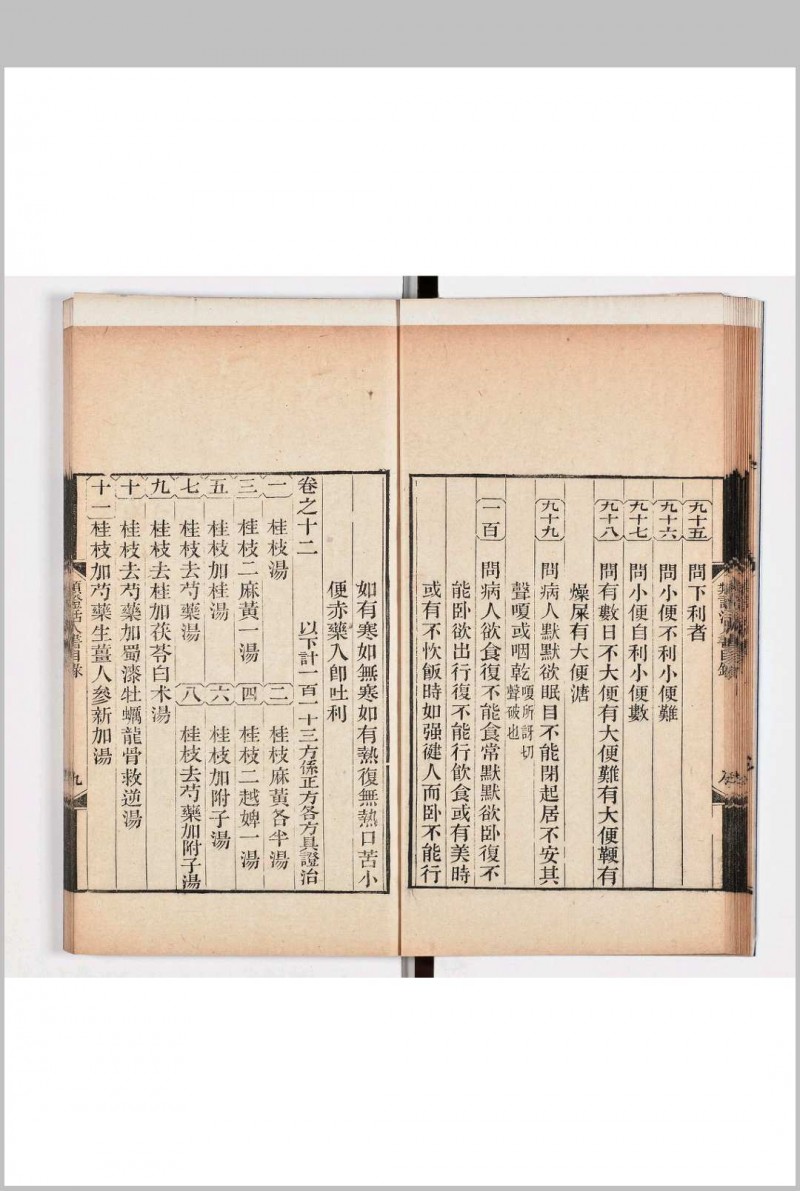 九十五 問下利者
九十六 問小便不利小便難
九十七 問小便自利小便數
九十八 問有數日不大便有大便難有大便鞕有
燥屎有大便溏
九十九 問病人默默欲眠目不能閉起居不安其
聲嗄或咽乾嗄所訝切聲破也
一百 問病人欲食復不能食常默默欲卧復不
能卧欲出行復不能行飲食或有美時
或有不忺飯時如强健人而卧不能行
如有寒如無寒如有熱復無熱口苦小
便赤藥入卽吐利
卷之十二 以下計一百一十三方係正方各方具證治
一 桂枝湯 二 桂枝麻黃各半湯
三 桂枝二麻黃一湯 四 桂枝二越婢一湯
五 桂枝加桂湯 六 桂枝加附子湯
七 桂枝去芍藥湯 八 桂枝去芍藥加附子湯
九 桂枝去桂加茯苓白朮湯
十 桂枝去芍藥加蜀漆牡蠣龍骨救逆湯
十一 桂枝加芍藥生薑人參新加湯
類證活人書目錄 九